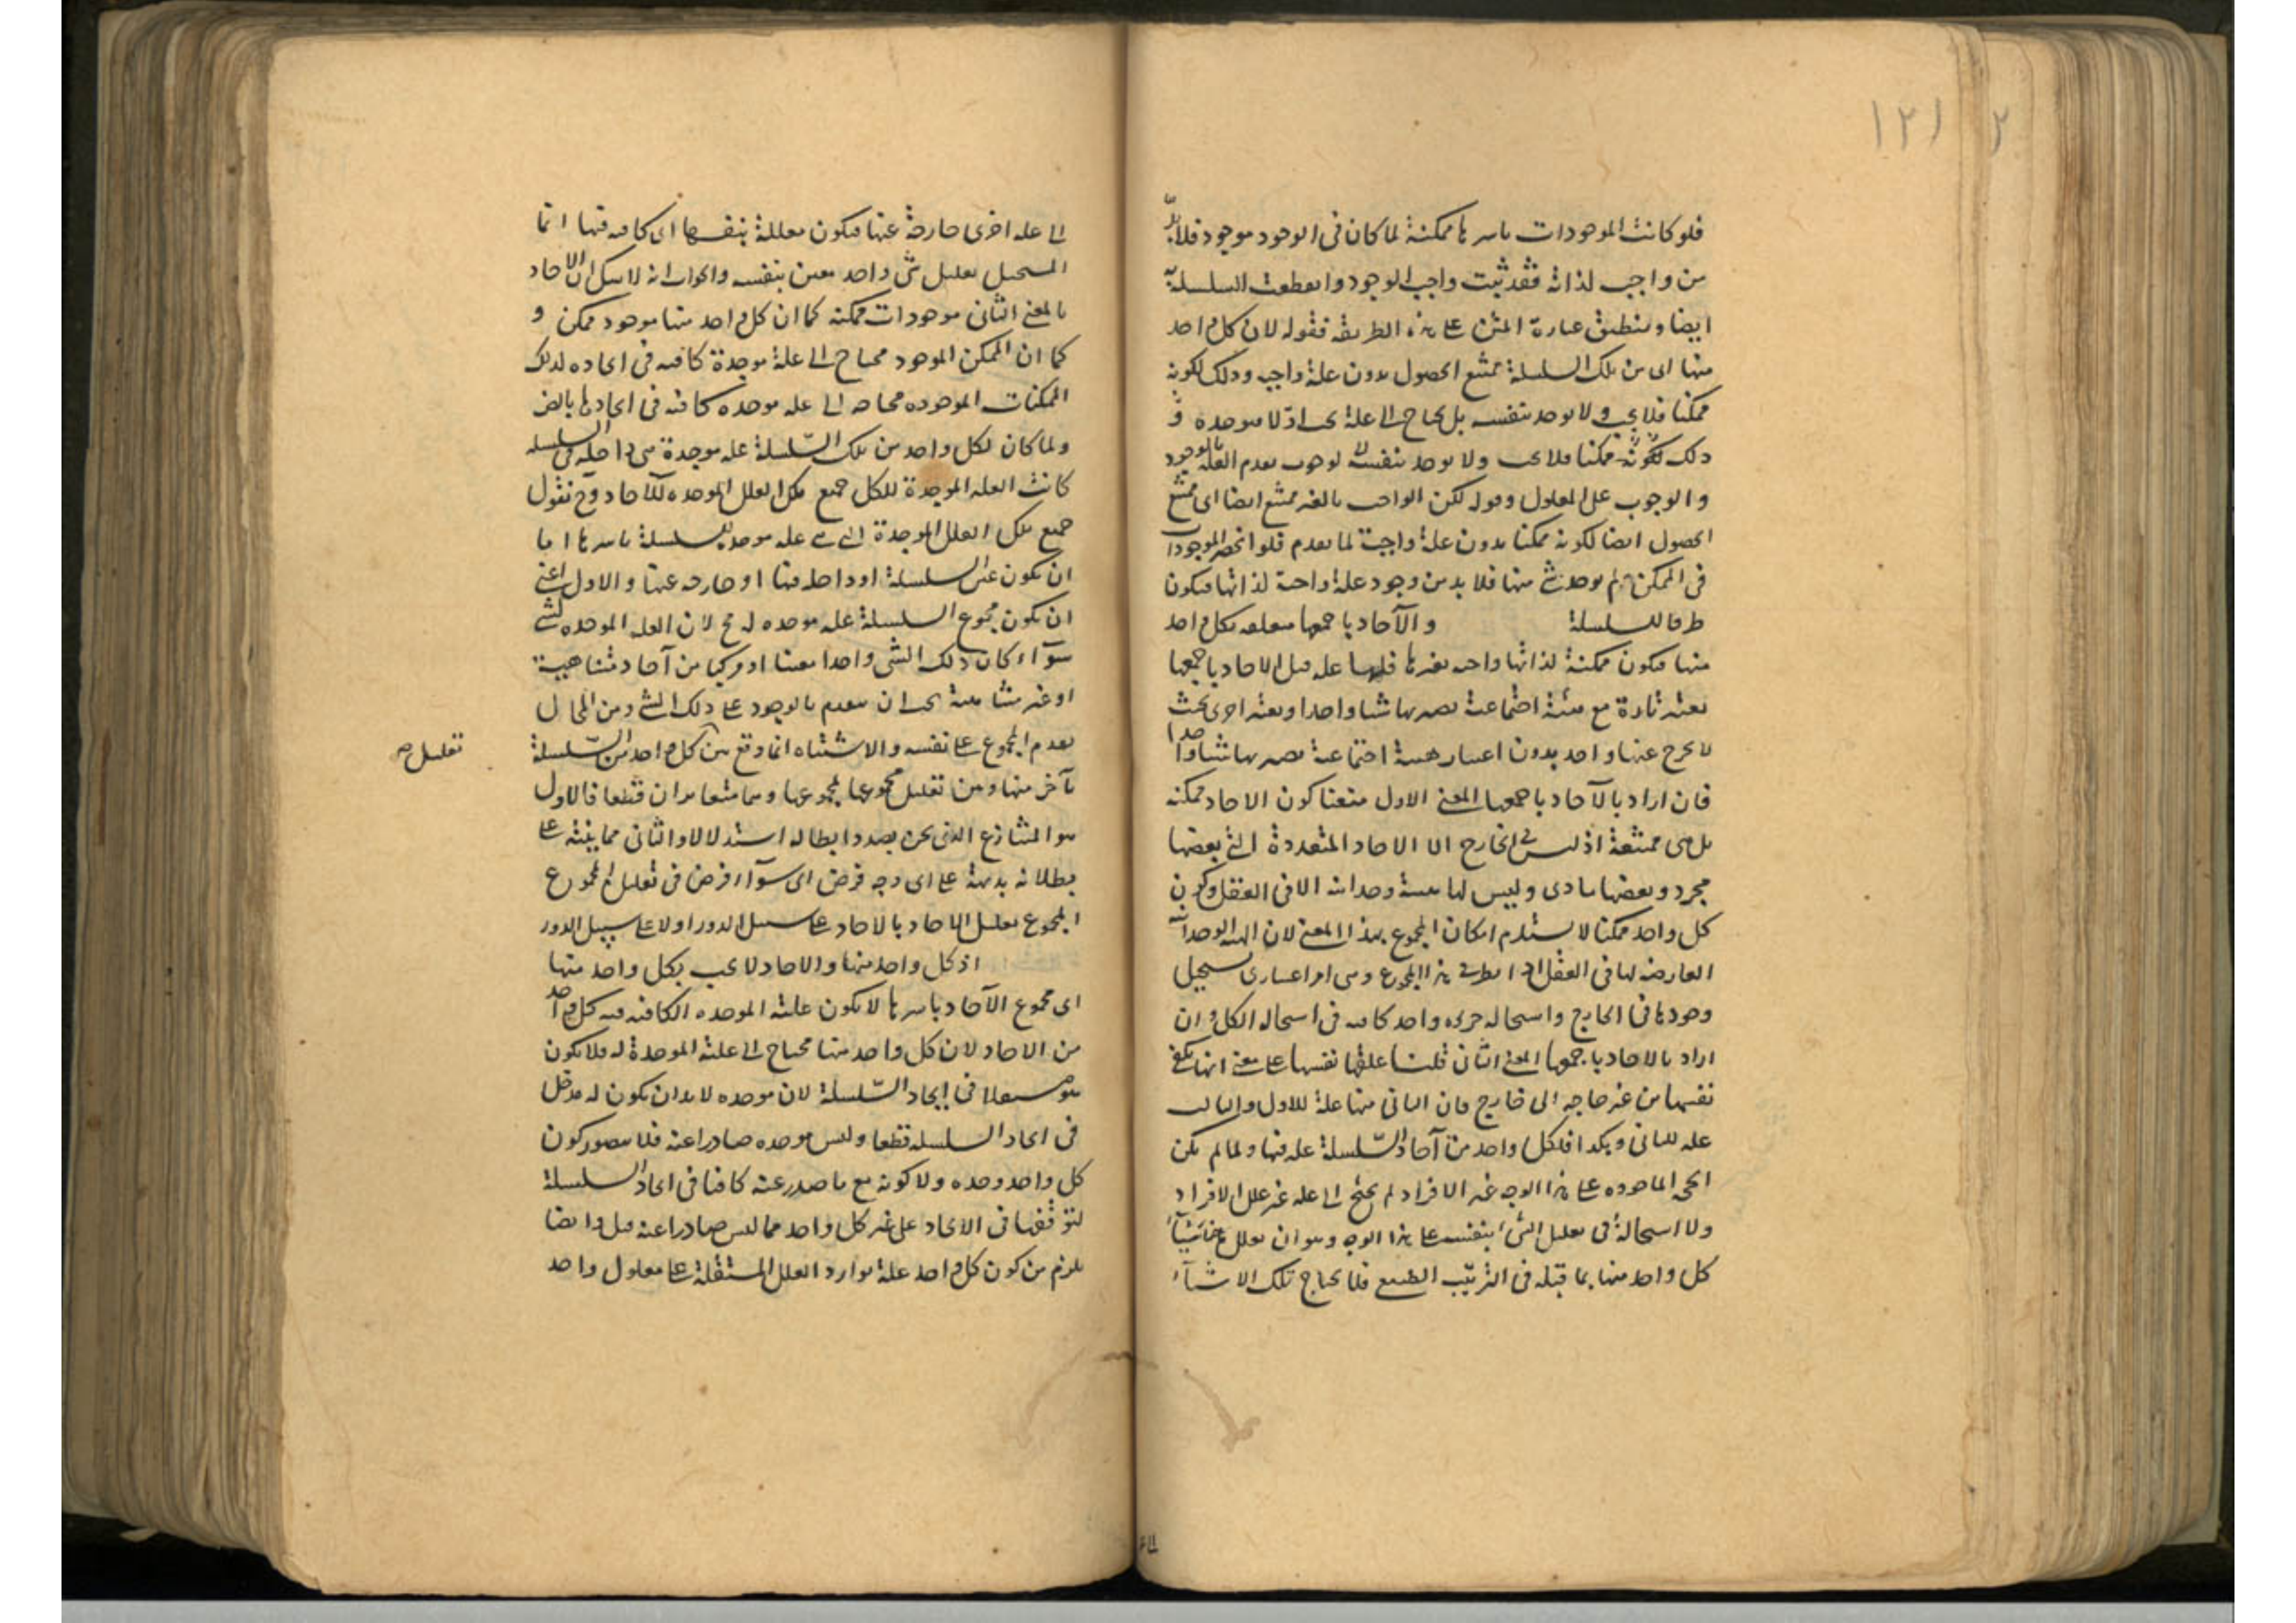 ١٢١ ٢
فلو كانت الموجودات باسرها ممكنة لما كان في الوجود موجود فلا بدّ
من واجب لذاته فقد ثبت واجب الوجود وانقطعت السلسلة به
ايضا وينطبق عبارة المتن على هذه الطريقة فقوله لان كل واحد
منها اى من تلك السلسلة ممتنع الحصول بدون علة واجبه وذلك لكونه
ممكنا فلا يجب ولا يوجد بنفسه بل يحتاج الى علة موجدة و
ذلك لكونه ممكنا فلا يجب ولا يوجد بنفسه لا لوجوب تقدم العلة بالوجود
والوجوب على المعلول وقوله لكن الواجب بالغير ممتنع ايضا اى ممتنع
الحصول ايضا لكونه ممكنا بدون علة واجبة لما تقدم فلو انحصر الموجودات
في الممكن لم يوجد شئ منها فلا بد من وجود علة واجبة لذاتها فيكون
طرفا للسلسلة والآحاد باجمعها متعلقه بكل واحد
منها فيكون ممكنة لذاتها واجبه بغيرها فلها علة قيل الاحاد باجمعها
يعتبر تارة مع هيئة اجتماعية تصير بها شيئا واحدا ويعتبر اخرى بحيث
لا يخرج عنها واحد بدون اعتبار هيئة اجتماعية تصير بها شيئا واحدا
فان اراد بالآحاد باجمعها المعنى الاول منعنا كون الاحاد ممكنه
بل هى ممتنعة اذ ليس في الخارج الا الاحاد المتعددة التى بعضها
مجرد وبعضها مادى وليس لها هيئة وحدانيه الا في العقل وكون
كل واحد ممكنا لا يستلزم امكان المجموع بهذا المعنى لان الهيئه الوحدانية
العارضه لها في العقل هذا المجموع وهى امر اعتبارى يستحيل
وجودها في الخارج واستحاله جزئه واحد كافيه في استحاله الكل وان
اراد بالاحاد باجمعها المعنى الثانى قلنا علتها نفسها على معنى انها يكفى
نفسها من غير حاجه الى خارج فان الثانى منها علة للاول والثالث
علة للثانى وهكذا فلكل واحد من آحاد السّلسلة علة فيها ولما لم يكن
الجميع الماخوذه على هذا الوجه غير الافراد لم يحتج الى علة غير علل الافراد
ولا استحالة فى تعليل الشىء بنفسه على هذا الوجه وهو ان يعلل
كل واحد منها بما قبله في الترتّب الطبيعى فلا يحتاج تلك الاشيآء
الى علة اخرى خارجة عنها فيكون معللة بنفسها اى كافيه فيها انما
المستحيل تعليل شئ واحد معين بنفسه والجواب انه لا شك ان الاحاد
بالمعنى الثانى موجودات ممكنه كما ان كل واحد منها موجود ممكن و
كما ان الممكن الموجود محتاج الى علة موجدة كافيه في ايجاده لذلك
الممكنات الموجوده محتاجه الى علة موجده كافيه في ايجادها بالضر
ولما كان لكل واحد من تلك السّلسلة علة موجدة هى داخله فى السلسله
كانت العله الموجدة للكل جميع تلك العلل الموجده للآحاد وح نقول
جميع تلك العلل الموجدة التى هى علة موجده للسلسلة باسرها اما
ان يكون عين السلسلة او داخله فيها او خارجه عنها والاول اعنى
ان يكون مجموع السلسلة علة موجده له مح لان العله الموجده لشئ
سوآء كان ذلك الشى واحدا معينا او مركبا من آحاد متناهية
او غير متناهية يجب ان يتقدم بالوجود على ذلك الشئ ومن المحال
تقدم المجموع على نفسه والاشتباه انما وقع بين كل واحد من السّلسلة
بآخر منها وبين تعليل مجموعها بمجموعها وهما متغايران قطعا فالاول
هو المتنازع الذى نحن بصدد ابطاله استدلالا والثانى مما ينبه على
بطلانه بديهة على اى وجه فرض اى سوآء فرض في تعليل المجموع
المجموع تعليل الاحاد بالاحاد على سبيل الدور او لا على سبيل الدور
اذ كل واحد منها والاحاد لا يجب بكل واحد منها
اى مجموع الآحاد باسرها لا يكون علته الموجده الكافيه فيه كل واحد
من الاحاد لان كل واحد منها محتاج الى علته الموجدة له فلا يكون
هو مستقلا في ايجاد السّلسلة لان موجده لا بد ان يكون له مدخل
في ايجاد السلسله قطعا وليس موجده صادرا عنه فلا يتصور كون
كل واحد وحده ولا كونه مع ما صدر عنه كافيا في ايجاد السلسلة
لتوقفها في الايجاد على غير كل واحد مما ليس صادرا عنه قيل وايضا
يلزم من كون كل واحد علة توارد العلل المستقلة على معلول واحد
تعليل صح